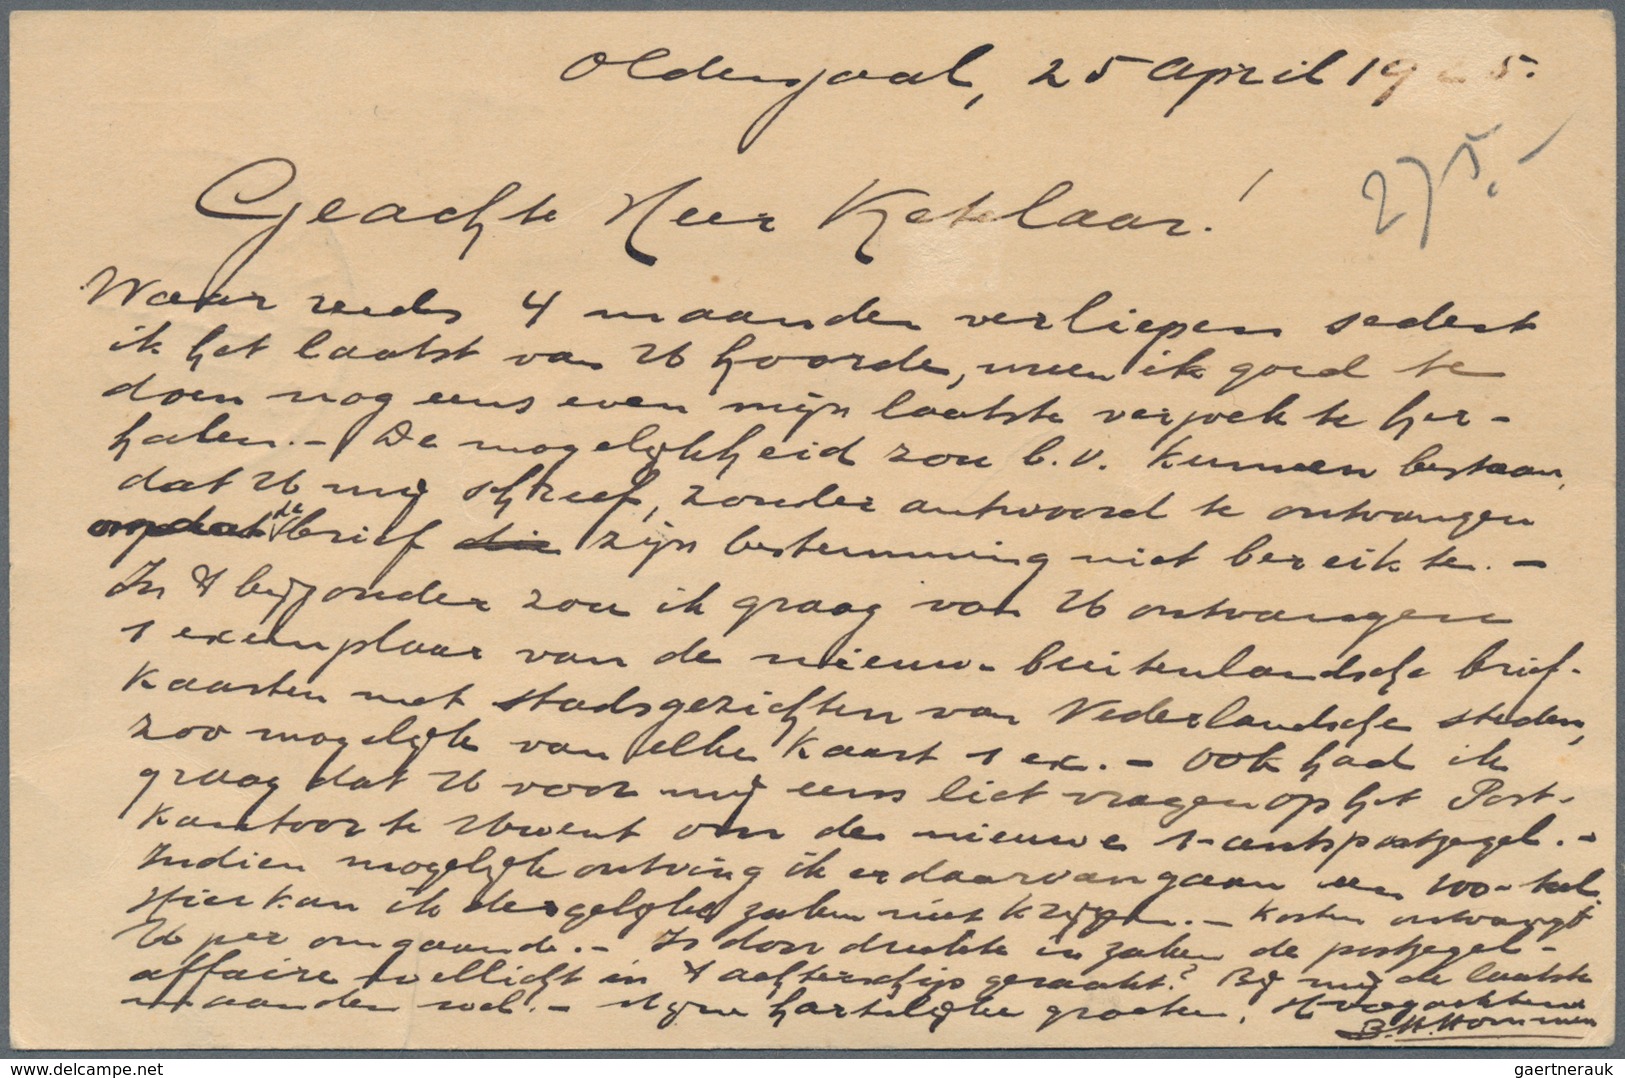 Oldenzaal, 25 April 19 5.
275.-
Geachte Heer Ketelaar!
Waar reeds 4 maanden verliepen sedert
ik het laatst van U hoorde, meen ik goed te
doen nog eens even mijn laatste verzoek te her-
halen. - De mogelijkheid zou b.v. kunnen bestaan,
dat U mij schreef, zonder antwoord te ontvangen
omdat de brief die zijn bestemming niet bereikte. -
In 't bijzonder zou ik graag van U ontvangen
1 exemplaar van de nieuwe buitenlandsche brief-
kaarten met stadsgezichten van Nederlandsche steden,
zoo mogelijk van elke kaart 1 ex. - Ook had ik
graag dat U voor mij eens liet vragen op het Post-
kantoor te Uwent om de nieuwe 1-centspostzegel. -
Indien mogelijk ontving ik er daarvan gaan een 100-tal.
Hier kan ik dergelijke zaken niet krijgen. - Kosten ontvangt
U per omgaande. - Is door drukte in zaken de postzegel-
affaire wellicht in 't achterschip geraakt? Bij mij de laatste
maanden wel. - Mijne hartelijke groeten, Hoogachtend
B.H. Hommen
delcampe.net
gaertnerauk